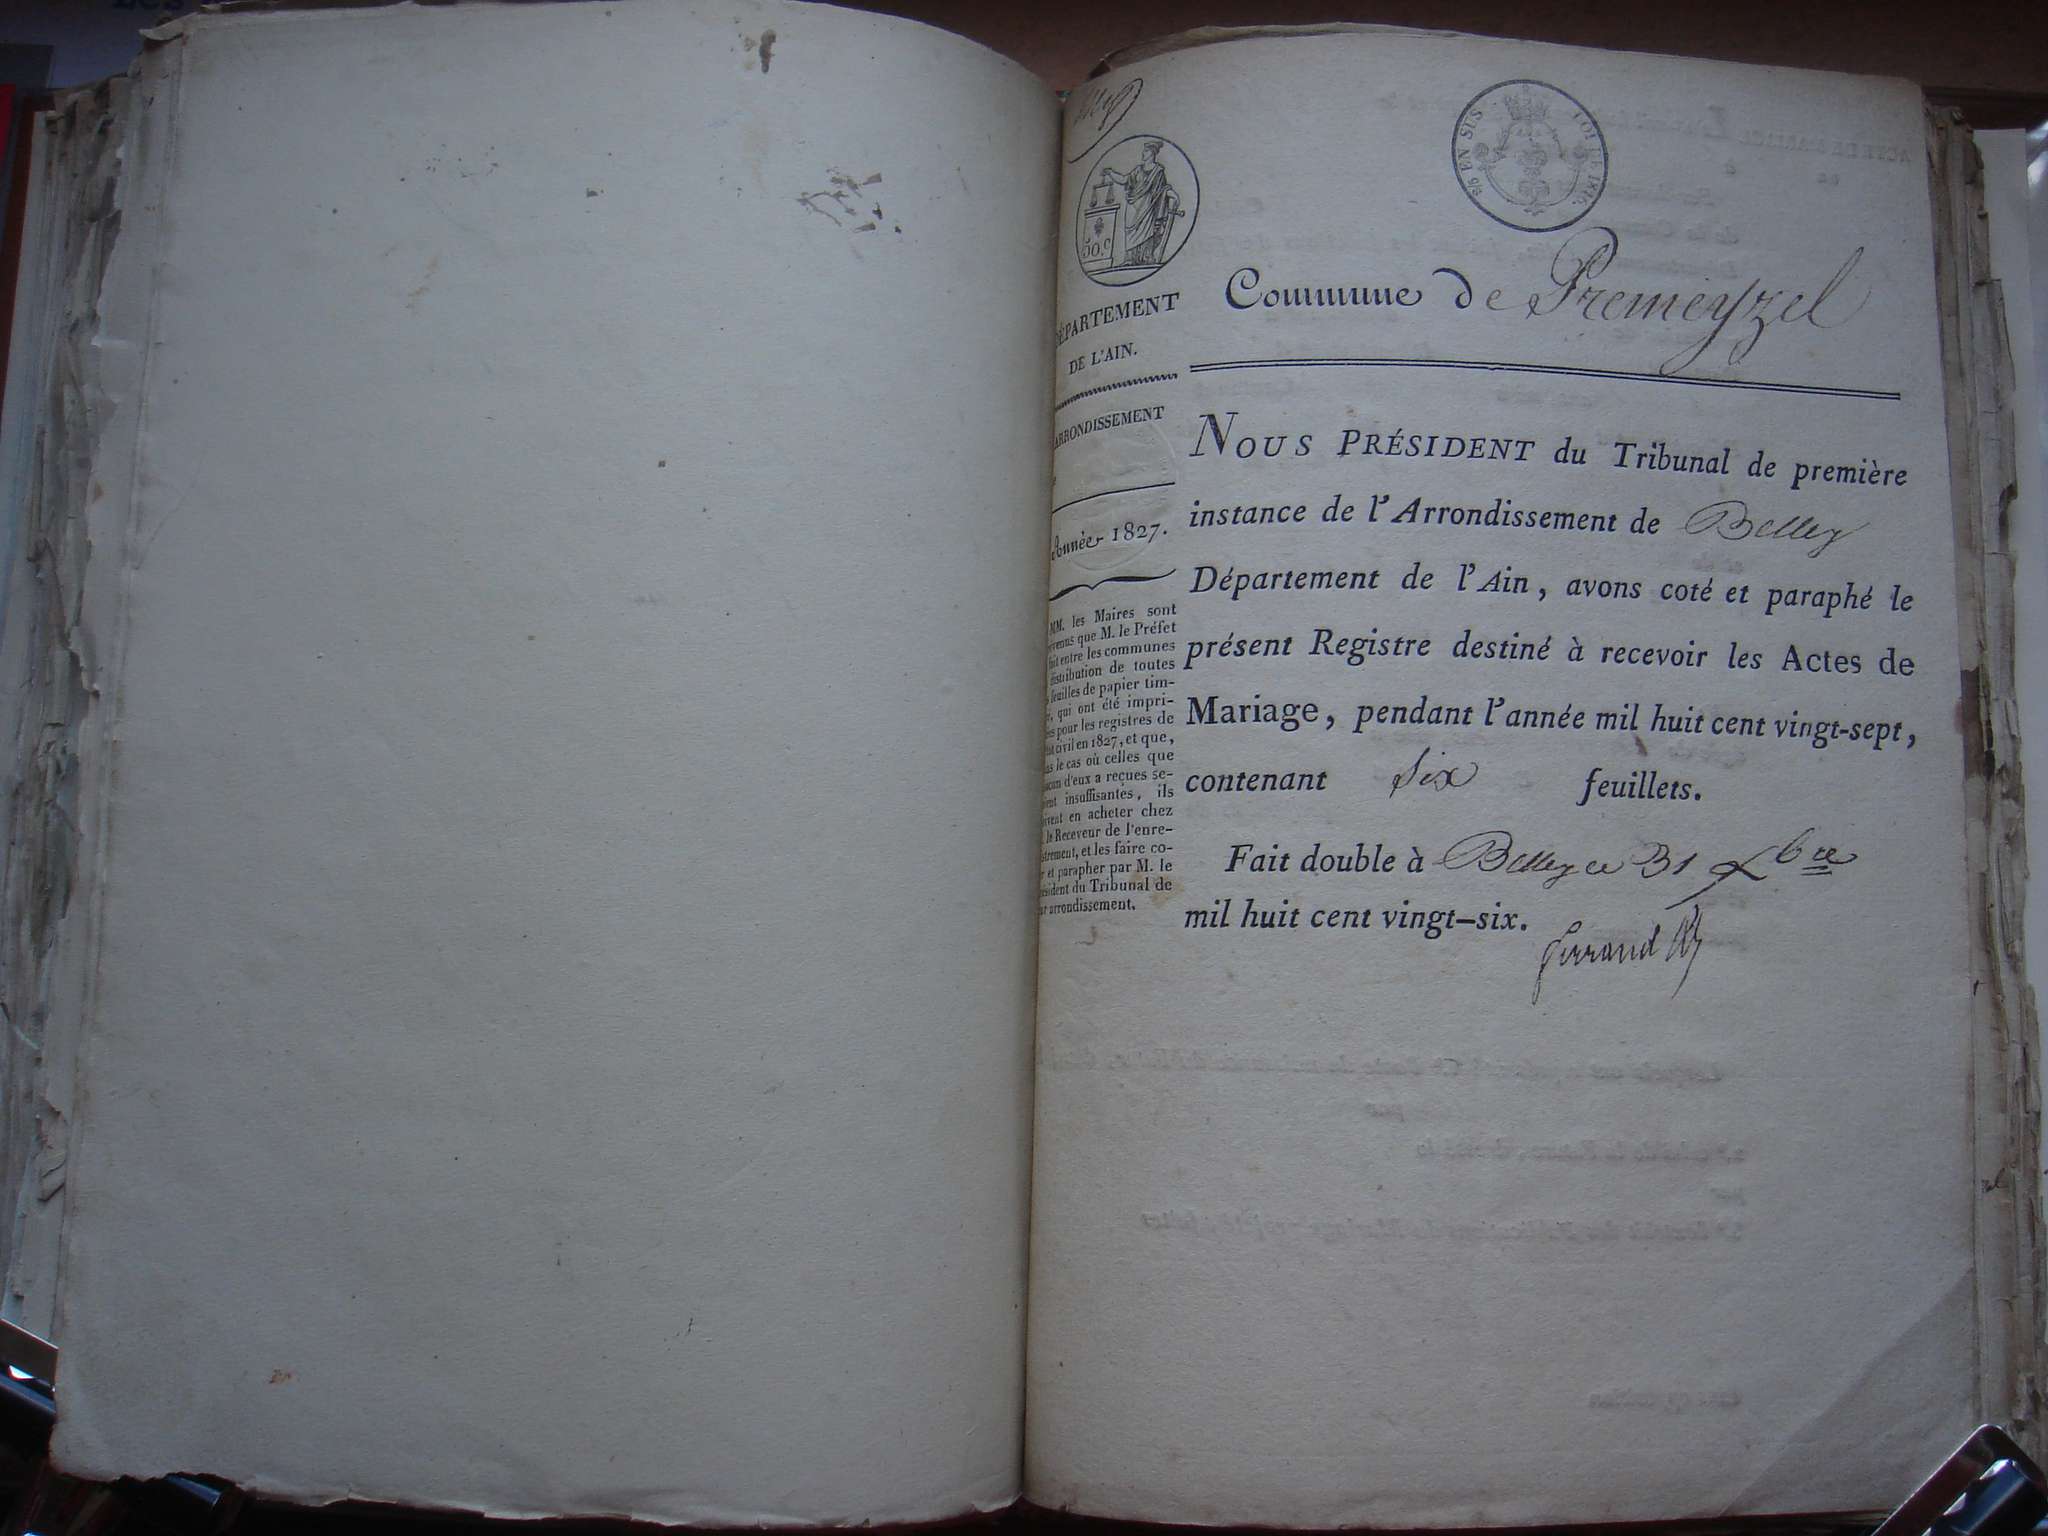 5/6 EN SUS
LOI DE 1816.
50.c
Commune de Premeyzel
DÉPARTEMENT
DE L'AIN.
ARRONDISSEMENT
Année 1827.
MM. les Maires sont
que M. le Préfet
fait entre les communes
distribution de toutes
feuilles de papier tim-
qui ont été impri-
pour les registres de
civil en 1827, et que,
le cas où celles que
d'eux a reçues se-
insuffisantes, ils
en acheter chez
le Receveur de l'enre-
et les faire co-
et parapher par M. le
Président du Tribunal de
arrondissement.
NOUS PRÉSIDENT du Tribunal de première
instance de l'Arrondissement de Belley
Département de l'Ain, avons coté et paraphé le
présent Registre destiné à recevoir les Actes de
Mariage, pendant l'année mil huit cent vingt-sept,
contenant six feuillets.
Fait double à Belley ce 31 Xbre
mil huit cent vingt-six.